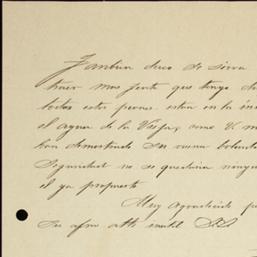 Tambien deseo se sirva
tener mas gente que tengo
todos estos peones estan en la
el agua de la Vieja, como V. m
han demostrado su buena voluntad
Seguridad no se quedaria ningun
el ya propuesto
Muy agradecido
su afmo atto